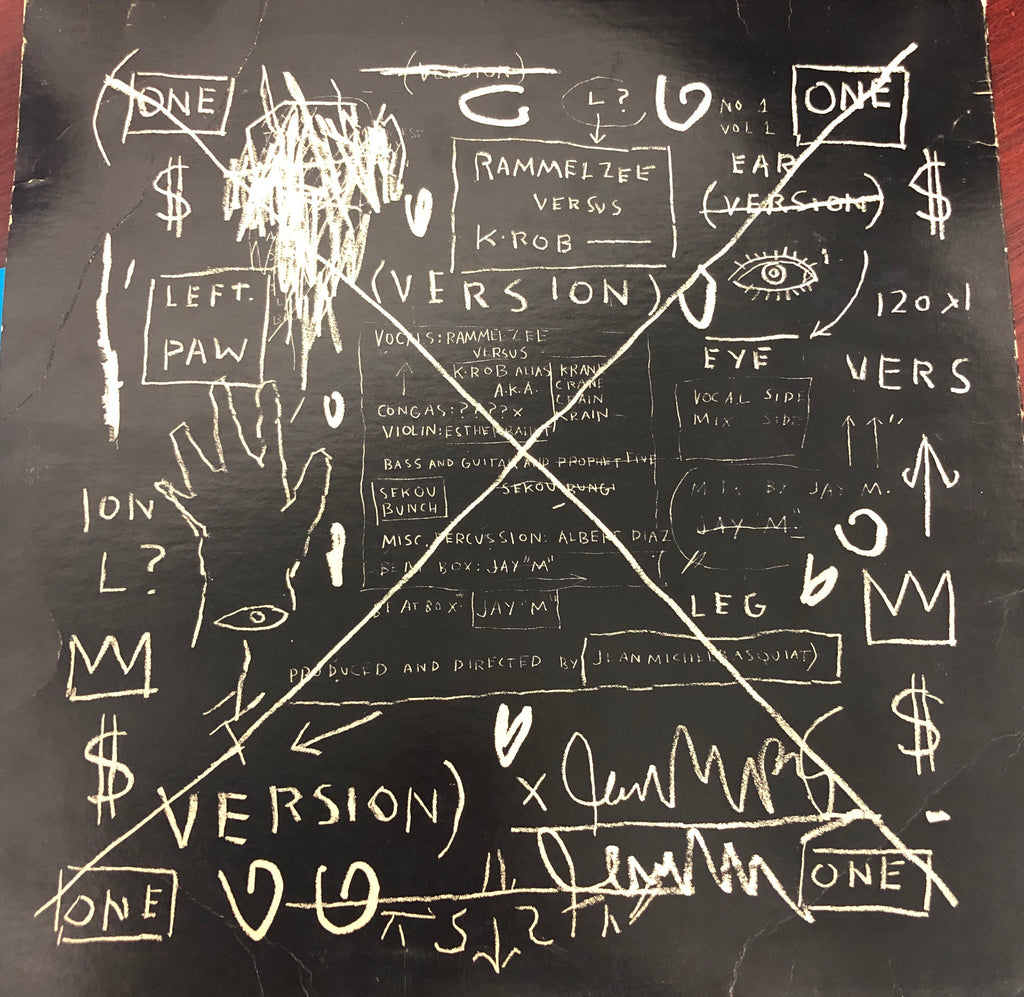 (VERSION)
ONE
L?
NO 1
VOL 1
ONE
$
RAMMELZEE
VERSUS
K·ROB —
EAR
(VERSION)
$
LEFT.
PAW
(VERSION)
120 x1
EYE
VERS
VOCALS: RAMMELZEE
VERSUS
K·ROB ALIAS
A.K.A.
KRANE
CRANE
CRAIN
KRAIN
CONGAS: ????x
VIOLIN: ESTHER
VOCAL SIDE
MIX SIDE
BASS AND GUITAR AND PROPHET FIVE
SEKOU
BUNCH
SEKOU BUNG
MIX BY JAY M.
JAY "M"
ION
L?
MISC. PERCUSSION: ALBERT DIAZ
BEAT BOX: JAY "M"
BEAT BOX: JAY "M"
LEG
PRODUCED AND DIRECTED BY JEAN MICHEL BASQUIAT)
$
$
VERSION)
x
ONE
ONE